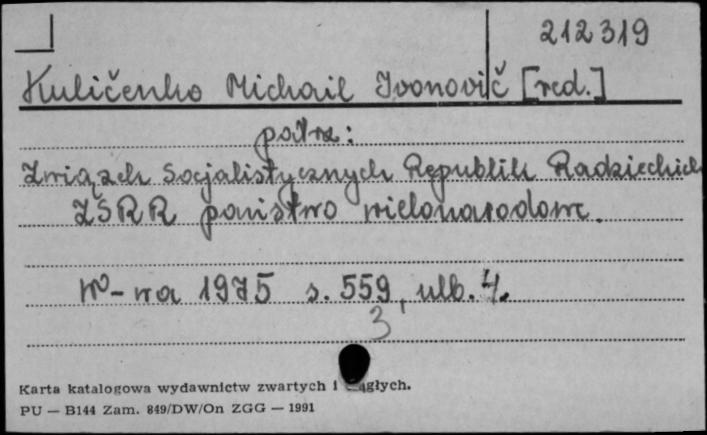 212319
Kuličenko Michail Ivonovič [red.]
patrz:
Związek Socjalistycznych Republik Radzieckich
ZSRR państwo wielonarodowe.
W-wa 1975 s. 559, ulb. 4.
3
Karta katalogowa wydawnictw zwartych i
PU — B144 Zam. 849/DW/On ZGG — 1991